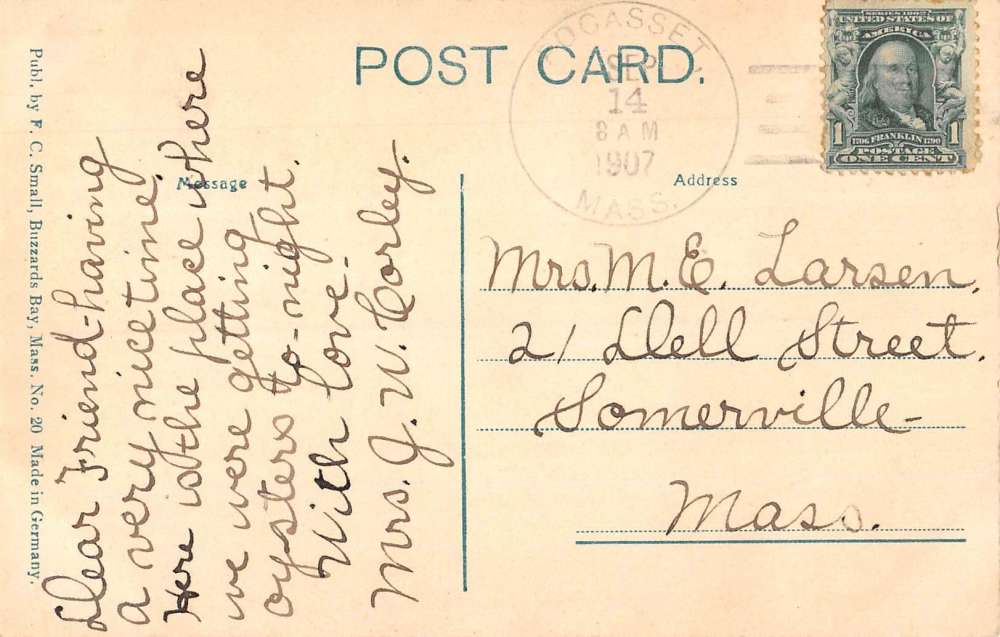 POST CARD.
Message
Address
Publ. by F. C. Small, Buzzards Bay, Mass. No. 20 Made in Germany.
SEP
14
8 AM
1907
MASS.
SERIES 1902
UNITED STATES OF
AMERICA
1
1
1706 FRANKLIN 1790
POSTAGE
ONE CENT
Dear Friend-having
a very nice time.
Here is the place where
we were getting
oysters to-night.
With love-
Mrs. J. W. Corley.
Mrs. M. E. Larsen,
21 Dell Street.
Somerville-
Mass.